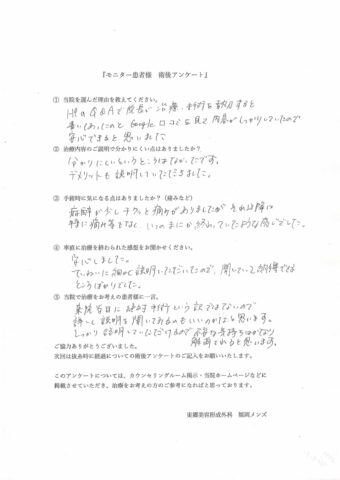 『モニター患者様 術後アンケート』
① 当院を選んだ理由を教えてください。
HPのQ&Aで院長が治療、手術を執刀すると
書いてあったのとGoogle口コミを見て内容がしっかりしていたので
安心できると思いました
② 治療内容のご説明で分かりにくい点はありましたか?
分かりにくいというところはなかったです。
デメリットも説明していただきました。
③ 手術時に気になる点はありましたか?(痛みなど)
麻酔が少しチクッと痛みがありましたが それ以降は
特に痛み等もなく、いつのまにか終わっていたような感じでした。
④ 率直に治療を終わられた感想をお聞かせください。
安心しました。
ていねいに細かく説明いただいたので、聞いていて納得できる
ところばかりでした。
⑤ 当院で治療をお考えの患者様に一言。
来院当日に絶対手術という訳ではないので
詳しく説明を聞いてみるのもいいのかなと思います。
しっかり説明していただけるので 不安な気持ちはかなり
解消されると思います。
ご協力ありがとうございました。
次回は抜糸時に経過についての術後アンケートのご記入をお願いいたします。
このアンケートについては、カウンセリングルーム掲示・当院ホームページなどに
掲載させていただき、治療をお考えの方のご参考になればと思っております。
東郷美容形成外科 福岡メンズ